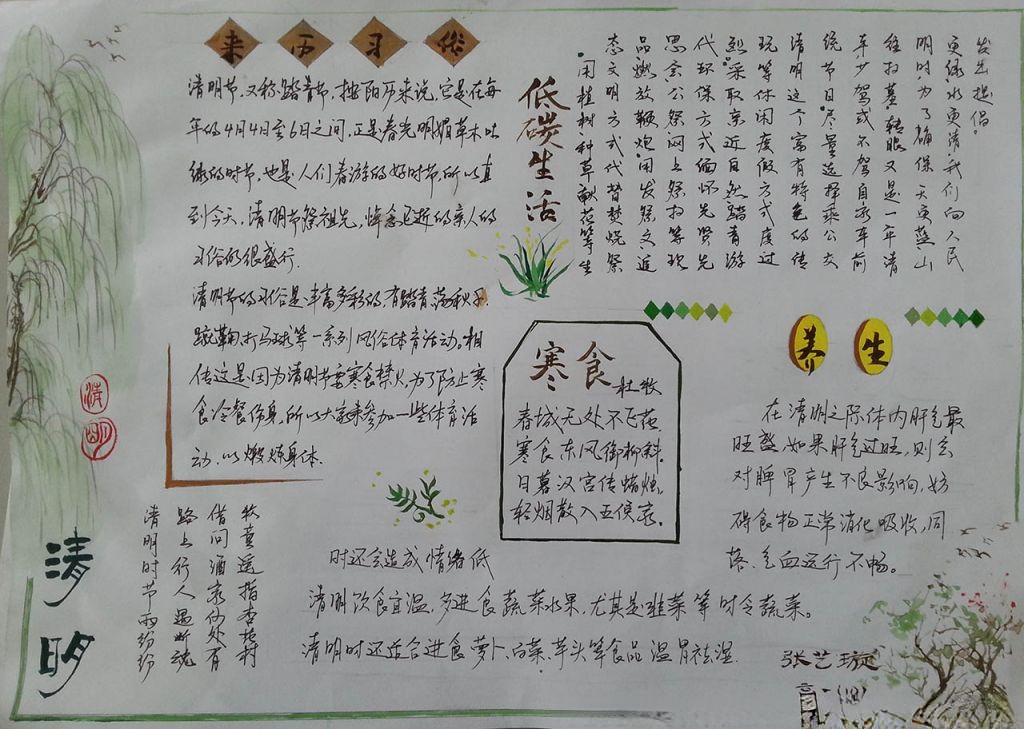 来历习俗
清明节,又称踏青节,按阳历来说,它是在每
年的4月4日至6日之间,正是春光明媚草木吐
绿的时节,也是人们春游的好时节,所以直
到今天,清明节祭祖先,悼念已逝的亲人的
习俗仍很盛行.
清明节的习俗是丰富多彩的,有踏青,荡秋千,
蹴鞠,打马球等一系列风俗体育活动。相
传这是因为清明节要寒食禁火,为了防止寒
食冷餐伤身,所以大家来参加一些体育活
动,以煅炼身体.
低碳生活
·用植树种草献花等生
态文明方式代替焚烧祭
品燃放鞭炮·用发祭文追
思念公祭网上祭扫等现
代环保方式缅怀先贤先
烈·采取亲近自然踏青游
玩等休闲度假方式度过
清明这个富有特色的传
统节日·尽量选择乘公交
车少驾或不驾自家车前
往扫墓转眼又是一年清
明时,为了确保天更蓝山
更绿水更清我们向人民
发出提倡。
寒食
杜牧
春城无处不飞花
寒食东风御柳斜.
日暮汉宫传蜡烛,
轻烟散入五侯家.
养生
在清明之际体内肝气最
旺盛,如果肝气过旺,则会
对脾胃产生不良影响,妨
碍食物正常消化吸收,同
时还会造成情绪低
落.气血运行不畅。
清明饮食宜温,多进食蔬菜水果,尤其是韭菜等时令蔬菜。
清明时还适合进食萝卜,白菜,芋头等食品温胃祛湿.
清明
清明
清明时节雨纷纷
路上行人遇断魂
借问酒家何处有
牧童遥指杏花村
张艺璇
高一(18)